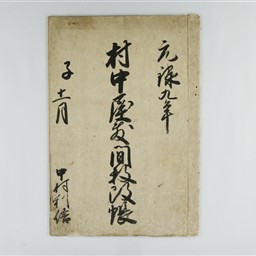 元禄九年
村中屋敷間数改帳
子十一月
中村